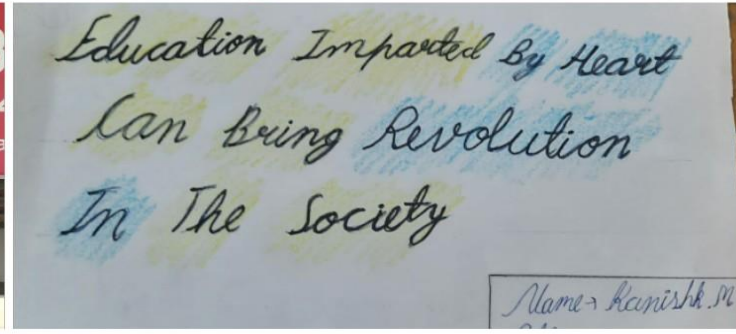 Education Imparted By Heart
Can Bring Revolution
In The Society
Name→ Kanishk.M